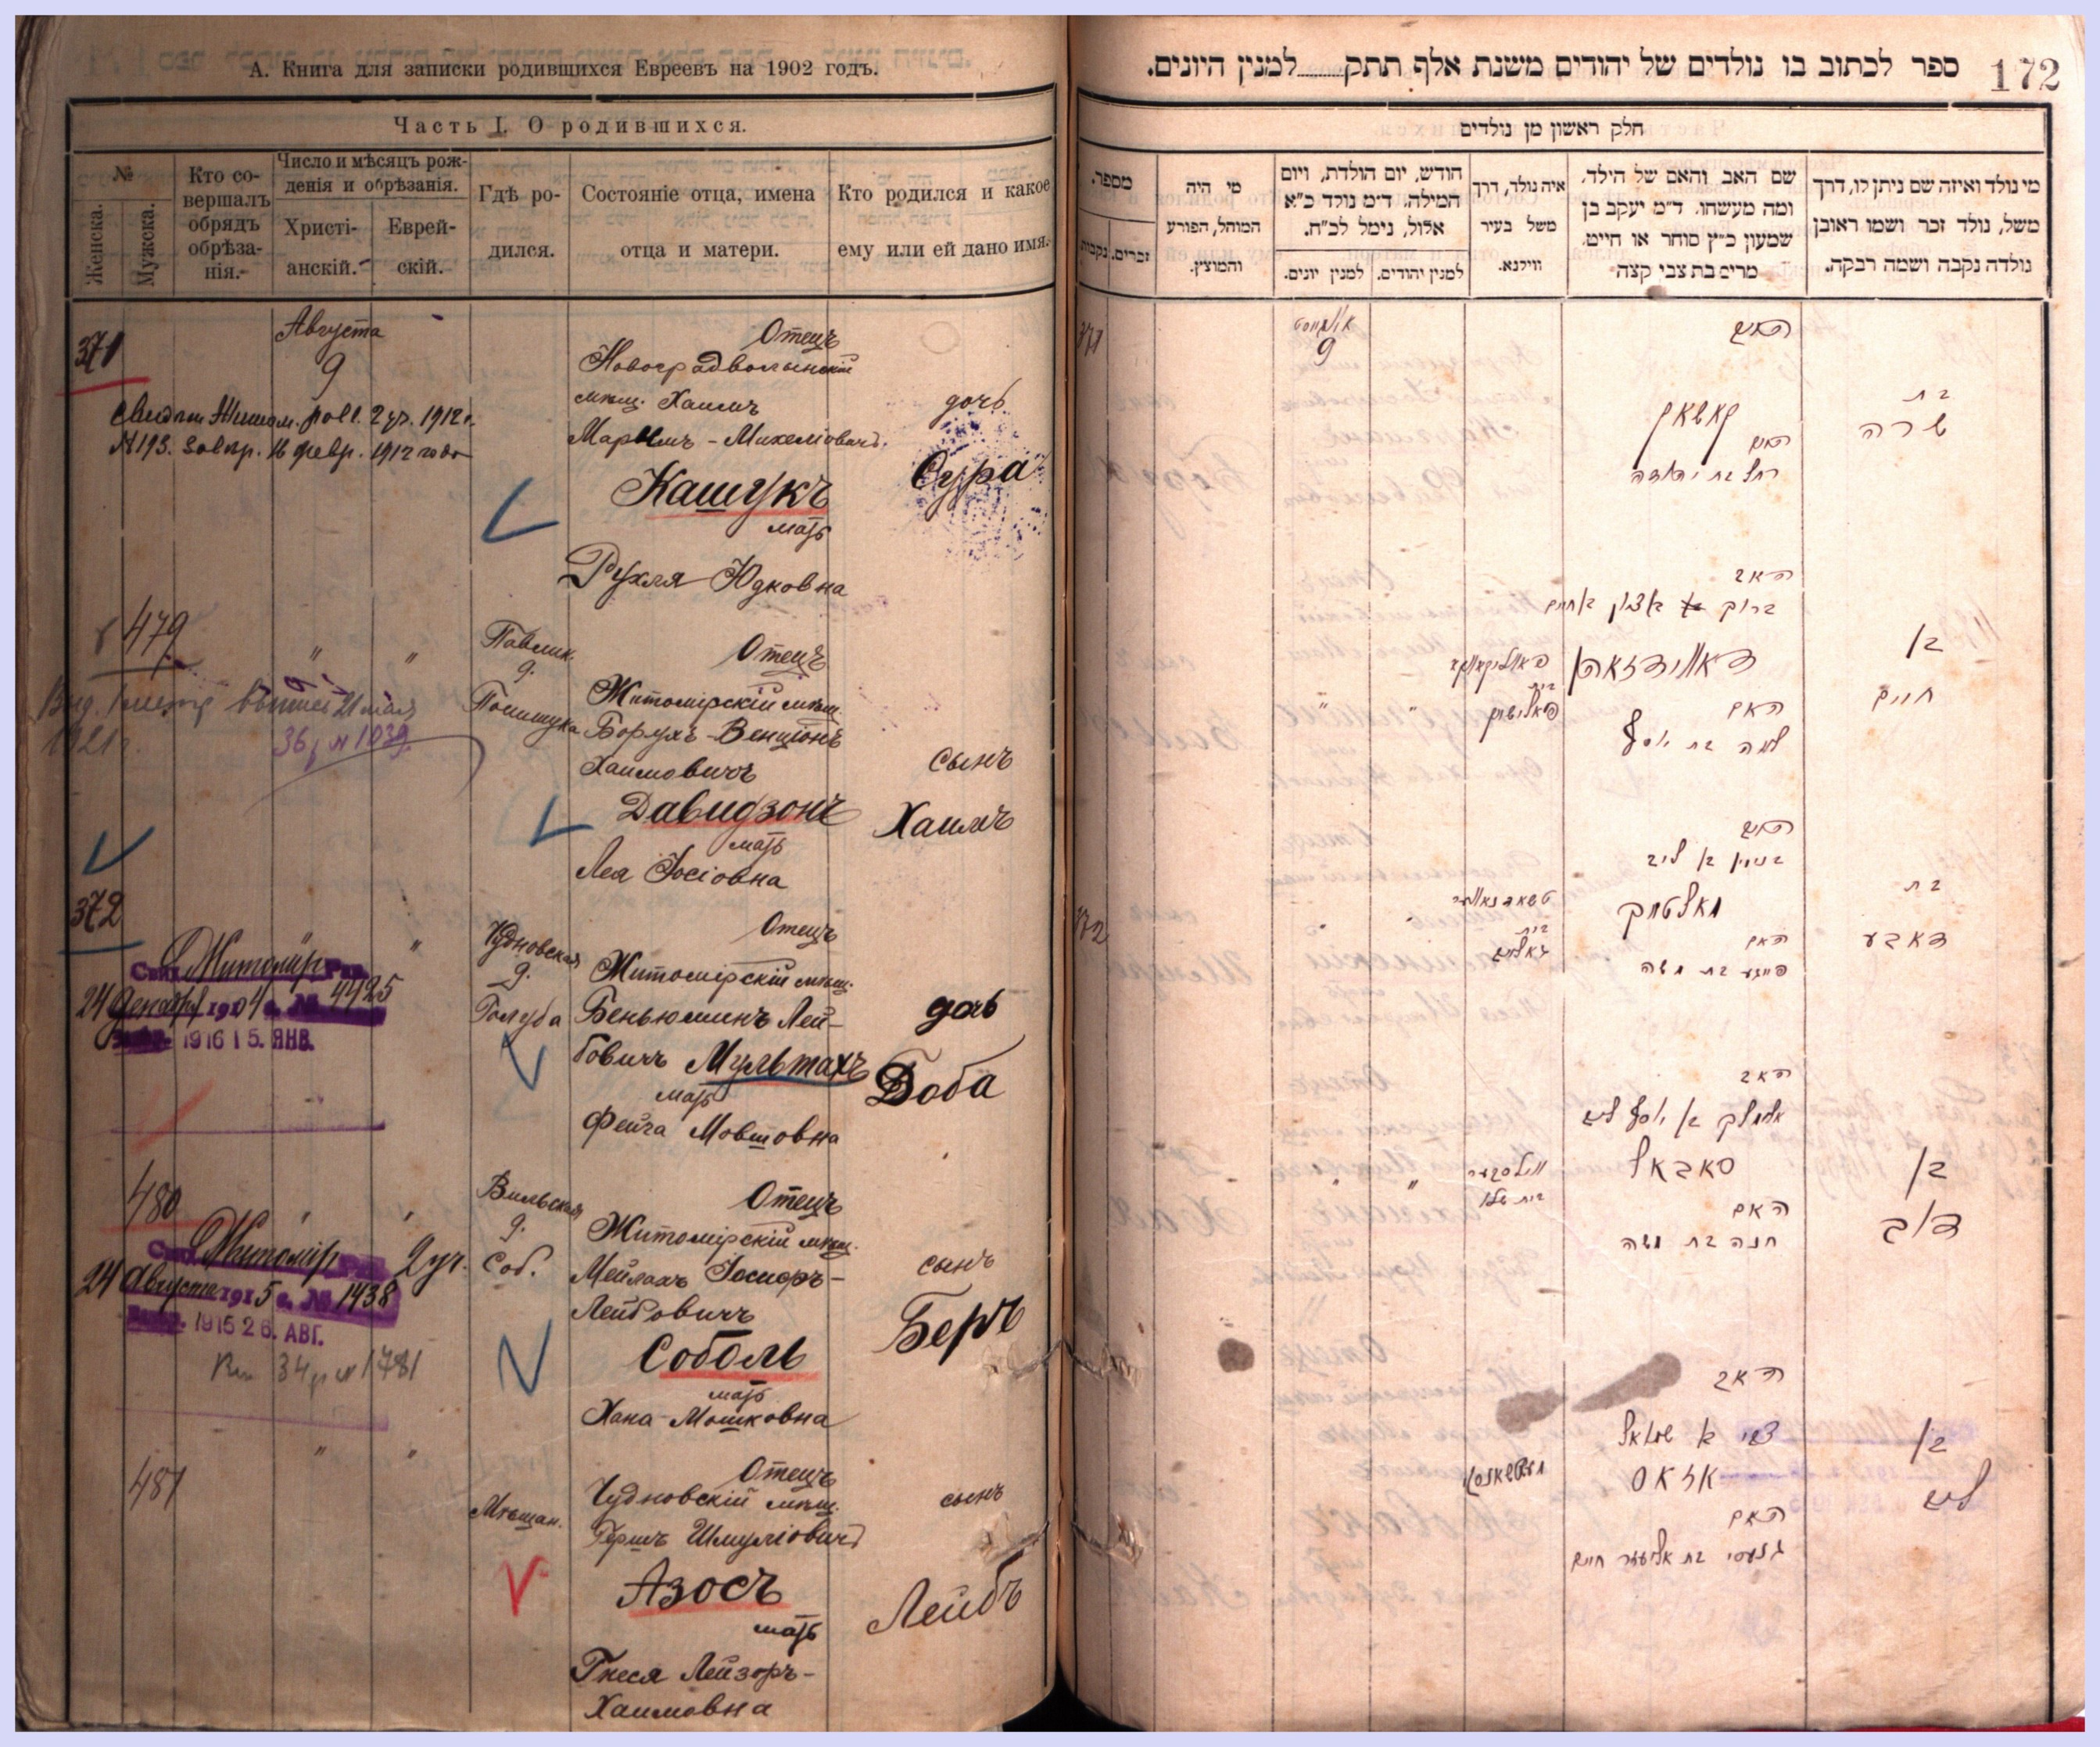 А. Книга для записки родившихся Евреевъ на 1902 годъ.
Часть I. О родившихся.
№
Женска.
Мужска.
Кто со-
вершалъ
обрядъ
обрѣза-
нія.
Число и мѣсяцъ рож-
денія и обрѣзанія.
Христі-
анскій.
Еврей-
скій.
Гдѣ ро-
дился.
Состояніе отца, имена
отца и матери.
Кто родился и какое
ему или ей дано имя.
371
Августа
9
Отецъ
Новоградволынскій
мѣщ. Хаимъ
Марымъ-Михеліовичъ
Кашукъ
мать
Рухля Юдковна
дочь
Сура
2 уч. 1912 г.
№ 193. 16 февр. 1912 года
479
"
"
Павлик.
д.
Полищука
Отецъ
Житомірскій мѣщ.
Борухъ-Бенціонъ
Хаимовичъ
Давидзонъ
мать
Лея Іосіовна
сынъ
Хаимъ
21 мая
1921 г.
№ 1039.
372
"
Чудновская
д.
Голуба
Отецъ
Житомірскій мѣщ.
Беньюминъ Лей-
бовичъ Мультахъ
мать
Фейга Мовшовна
дочь
Доба
Житомір Рав.
24 декабря 1904 г. № 4425
1916 15. ЯНВ.
480
Вильская
д.
Соб.
Отецъ
Житомірскій мѣщ.
Мейлахъ Іосифъ-
Лейбовичъ
Соболь
мать
Хана-Мошковна
сынъ
Беръ
Житомір Рав. 2 уч.
24 Августа 1915 г. № 1438
1915 26. АВГ.
34 № 1781
481
"
"
Мѣщан.
Отецъ
Чудновскій мѣщ.
Гершъ Шмуліовичъ
Азосъ
мать
Гнеся Лейзоръ-
Хаимовна
сынъ
Лейбъ
172
ספר לכתוב בו נולדים של יהודים משנת אלף תתק........למנין היונים.
חלק ראשון מן נולדים
מי נולד ואיזה שם ניתן לו, דרך
משל, נולד זכר ושמו ראובן
נולדה נקבה ושמה רבקה.
שם האב והאם של הילד,
ומה מעשהו. ד״מ יעקב בן
שמעון כ״ץ סוחר או חייט,
מרים בת צבי קצה
איה נולד, דרך
משל בעיר
ווילנא.
חודש, יום הולדת, ויום
המילה. ד״מ נולד כ״א
אלול, נימל לכ״ח.
למנין יהודים.
למנין יונים.
מי היה
המוהל, הפורע
והמוצץ.
מספר.
זכרים.
נקבות
371
אויגוסט
9
קאשאק
האם
רחל בת יהודה
בת
שרה
האב
ברוך
דאווידזאהן
האם
לאה בת יוסף
בן
חיים
372
בנימין בן ליב
מאלטאך
האם
פייגע בת משה
בת
דאבע
האב
אלימלך בן יוסף ליב
סאבאל
האם
חנה בת משה
בן
דוב
האב
צבי בן שמואל
אזאס
האם
גנעסי בת אליעזר חיים
בן
ליב